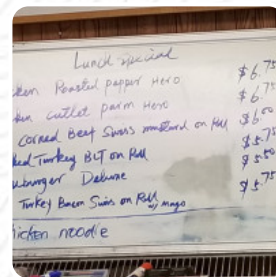 Lunch special
ken Roasted pepper Hero $6.75
ken cutlet parm Hero $6.75
Corned Beef Swiss mustard on Roll $6.00
ked Turkey BLT on Roll $5.75
mburger Deluxe $5.50
Turkey Bacon Swiss on Roll w/ mayo $5.75
hicken noodle